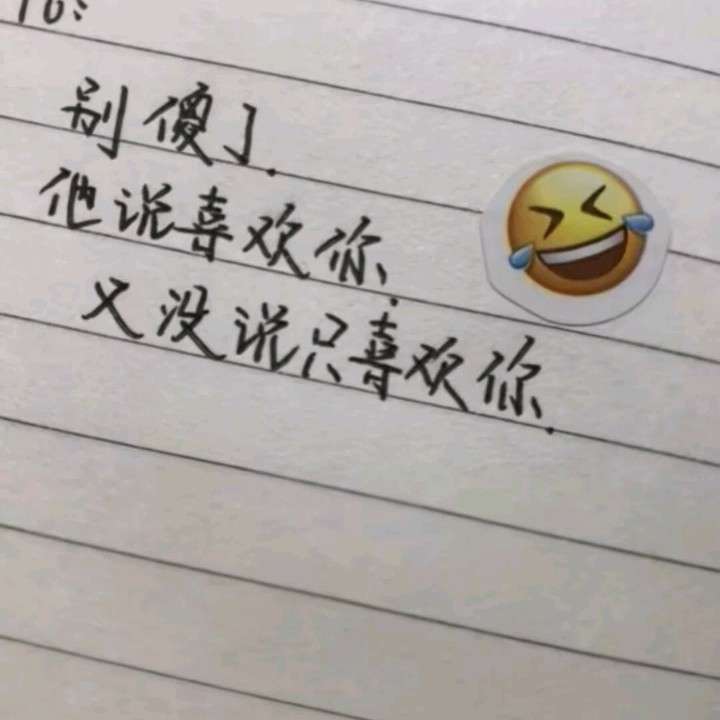 To:
别傻了.
他说喜欢你.
又没说只喜欢你.